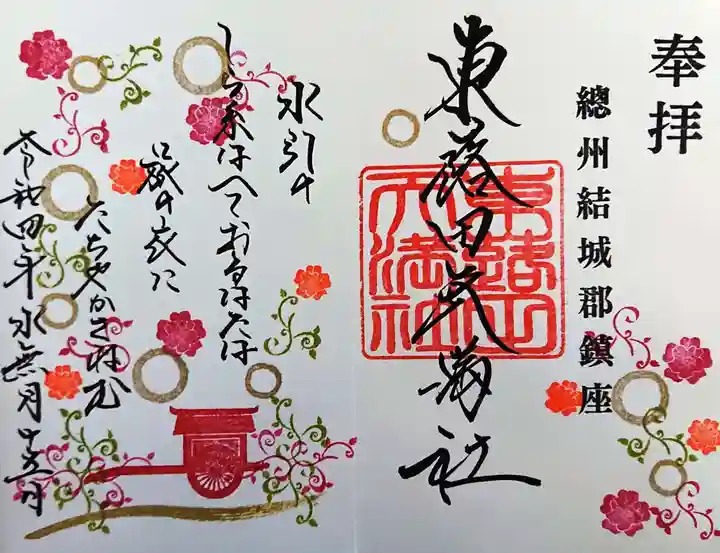 奉拝
總州結城郡鎮座
東蕗田天満社
東蕗田天満社
水引の
しら糸はへておるはたは
の衣に
たちやかさねむ
令和四年水無月十五日